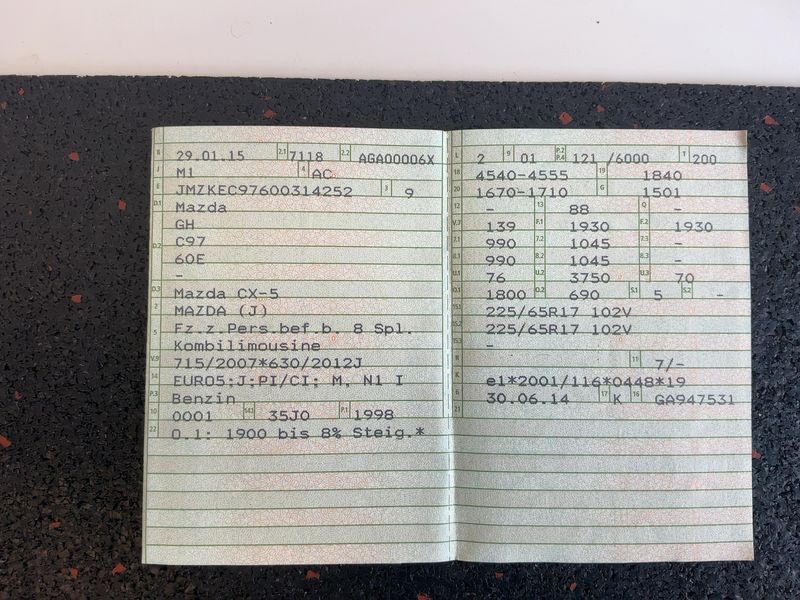 B 29.01.15 2.1 7118 2.2 AGA00006X
J M1 4 AC
E JMZKEC97600314252 3 9
D.1 Mazda
GH
D.2 C97
60E
-
D.3 Mazda CX-5
2 MAZDA (J)
5 Fz.z.Pers.bef.b. 8 Spl.
Kombilimousine
V.9 715/2007*630/2012J
14 EURO5;J;PI/CI; M, N1 I
P.3 Benzin
10 0001 14.1 35J0 P.1 1998
22 O.1: 1900 bis 8% Steig.*
L 2 9 01 P.2 P.4 121 /6000 T 200
18 4540-4555 19 1840
20 1670-1710 G 1501
12 - 13 88 Q -
V.7 139 F.1 1930 F.2 1930
7.1 990 7.2 1045 7.3 -
8.1 990 8.2 1045 8.3 -
U.1 76 U.2 3750 U.3 70
O.1 1800 O.2 690 S.1 5 S.2 -
15.1 225/65R17 102V
15.2 225/65R17 102V
15.3 -
R 11 7/-
K e1*2001/116*0448*19
6 30.06.14 17 K 16 GA947531
21